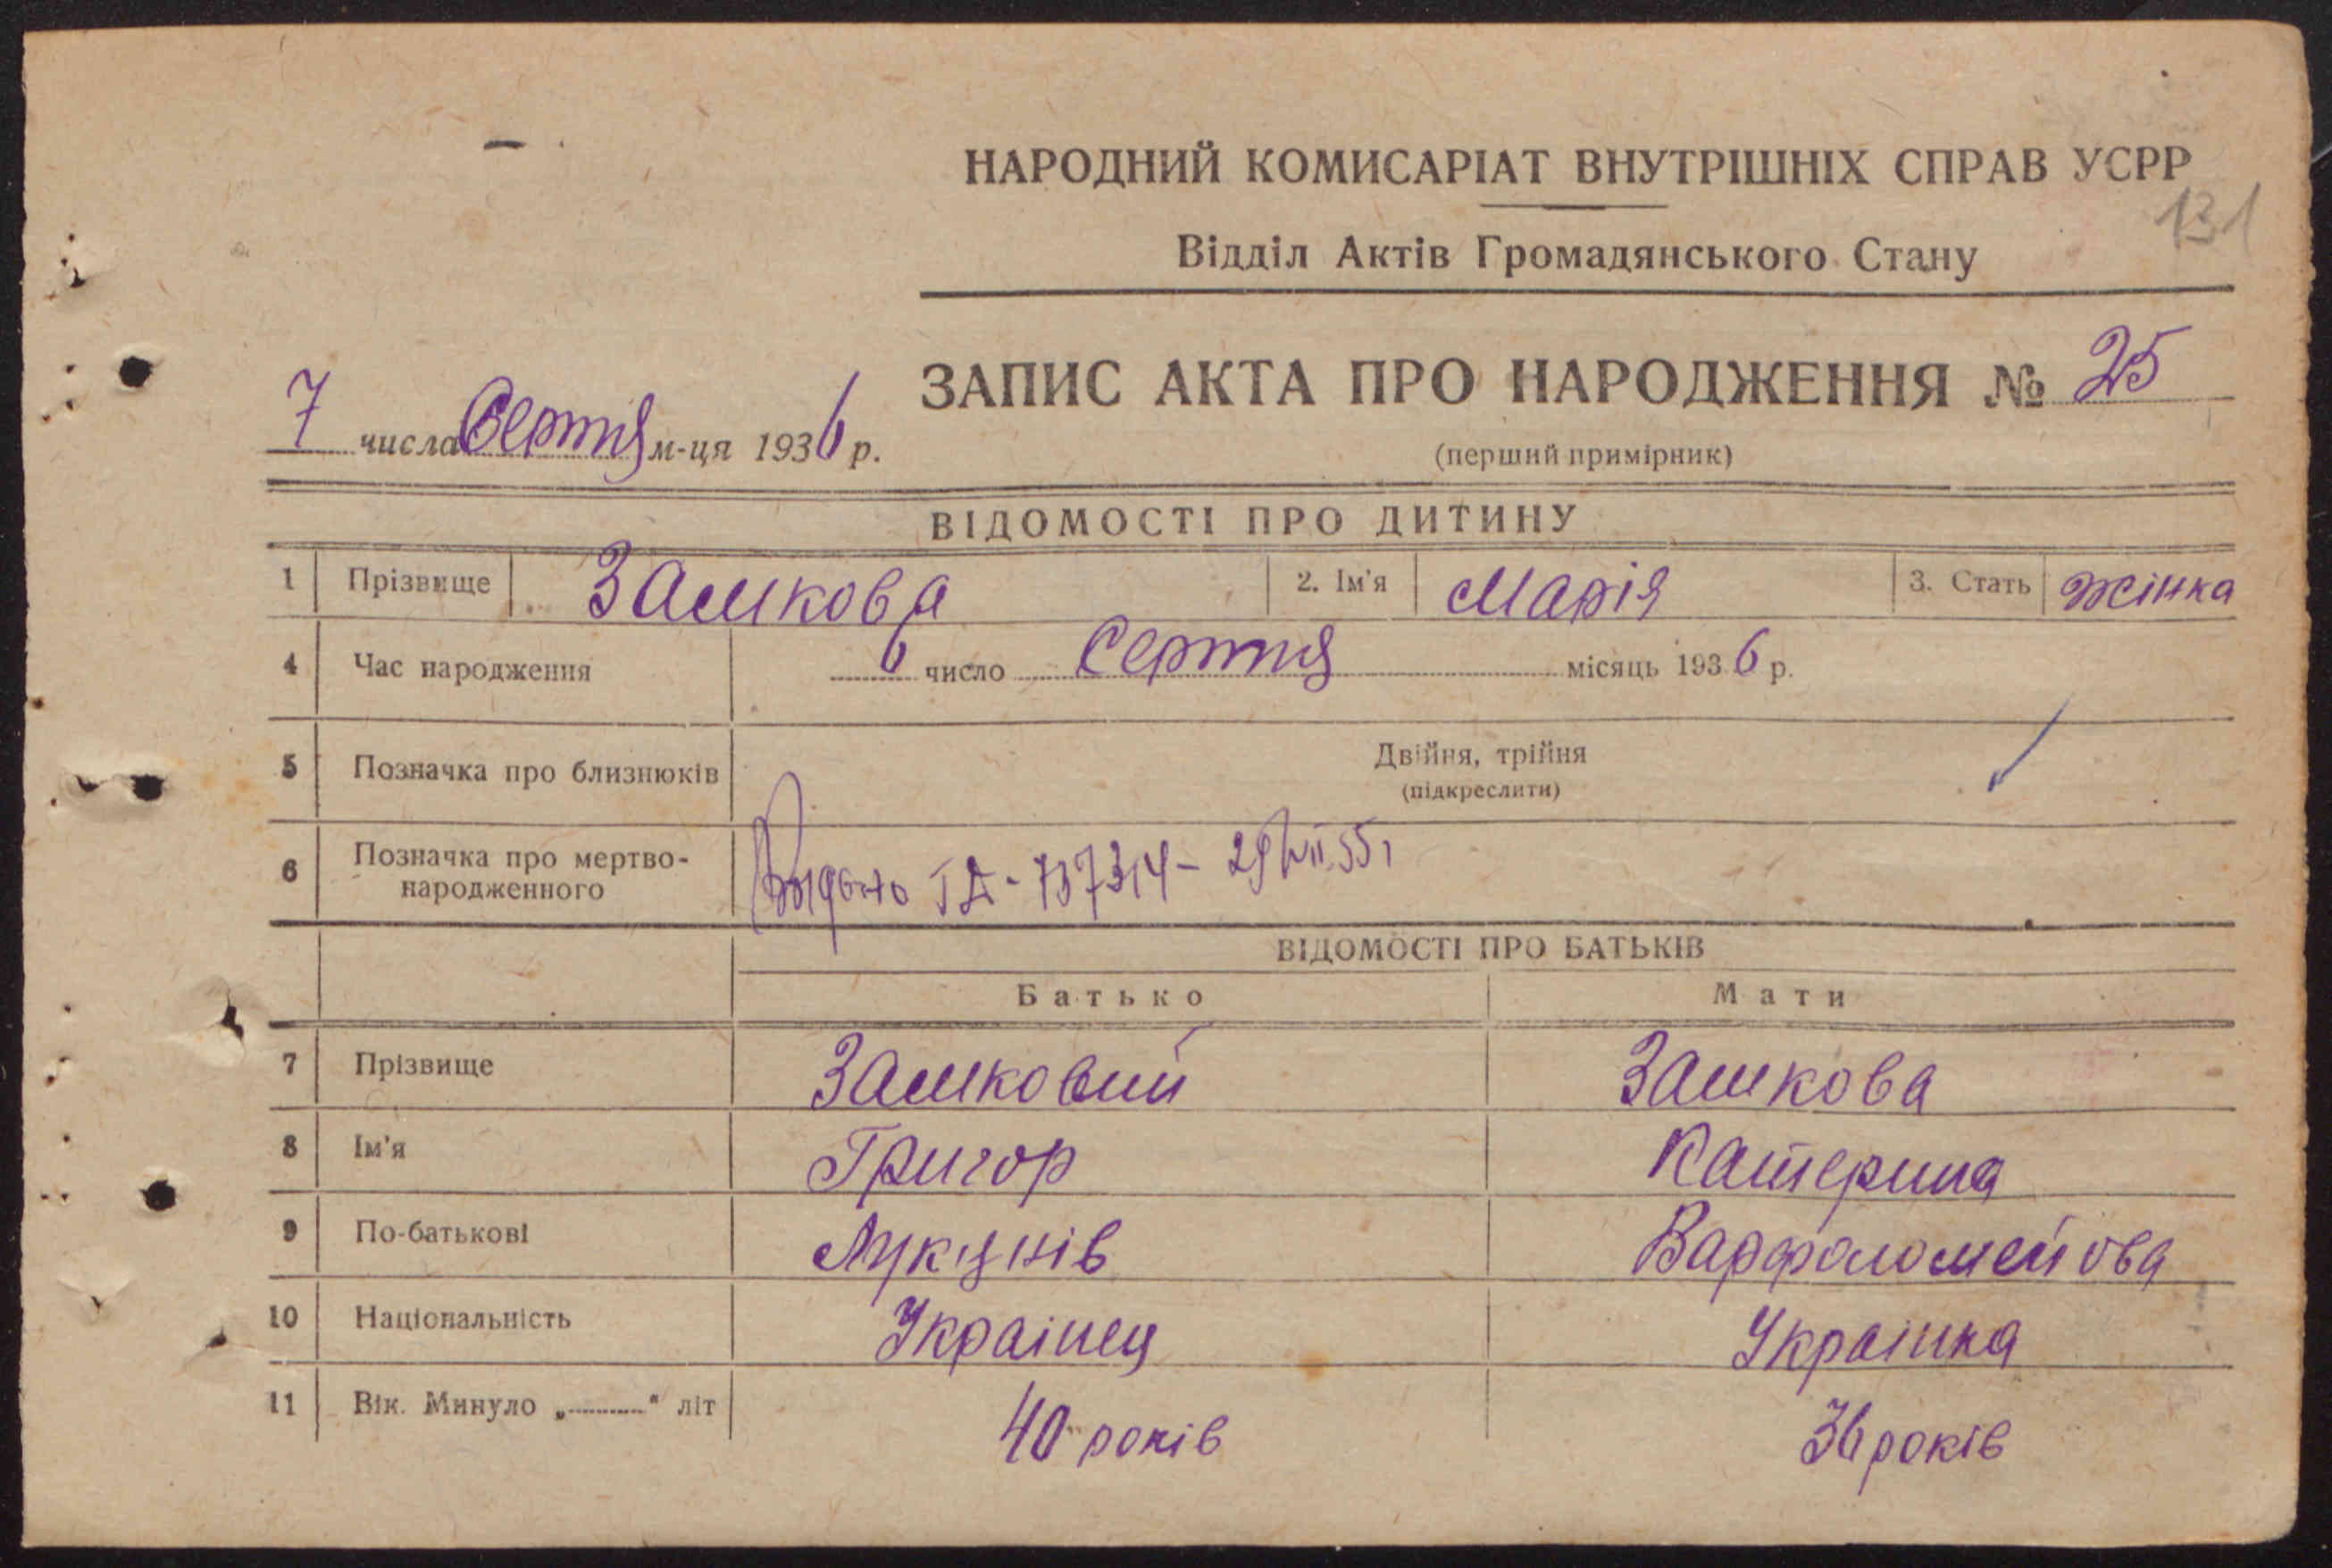 НАРОДНИЙ КОМИСАРІАТ ВНУТРІШНІХ СПРАВ УСРР
131
Відділ Актів Громадянського Стану
ЗАПИС АКТА ПРО НАРОДЖЕННЯ № 25
7 числа Серпня м-ця 1936 р.
(перший примірник)
ВІДОМОСТІ ПРО ДИТИНУ
1 Прізвище Зашкова 2. Ім'я Марія 3. Стать жінка
4 Час народження 6 число Серпня місяць 1936 р.
5 Позначка про близнюків Двійня, трійня
(підкреслити)
6 Позначка про мертво-
народженного
737314 - 29
ВІДОМОСТІ ПРО БАТЬКІВ
Батько Мати
7 Прізвище Зашковий Зашкова
8 Ім'я Григор Катерина
9 По-батькові Лукянів Варфоломейова
10 Національність Украінец Украінка
11 Вік. Минуло „ “ літ 40 років 36 років